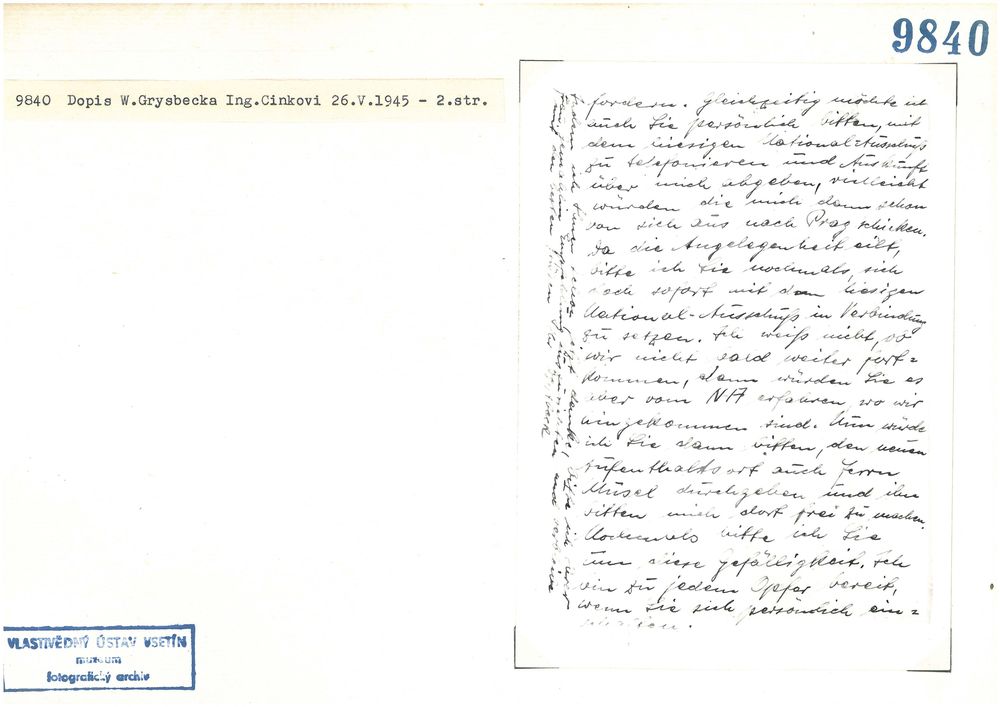 9840
9840 Dopis W.Grysbecka Ing.Cinkovi 26.V.1945 - 2.str.
fordern. Gleichzeitig möchte ich
auch Sie persönlich bitten, mit
dem hiesigen National-Ausschuß
zu telefonieren und Auskunft
über mich abgeben, vielleicht
würden die mich dann schon
von sich aus nach Prag schicken.
Da die Angelegenheit eilt,
bitte ich Sie nochmals, sich
doch sofort mit dem hiesigen
National-Ausschuß in Verbindung
zu setzen. Ich weiß nicht, ob
wir nicht bald weiter fort=
kommen, dann würden Sie es
aber vom NA erfahren, wo wir
hingekommen sind. Nun würde
ich Sie dann bitten, den neuen
Aufenthaltsort auch Herrn
Musel durchgeben und ihn
bitten mich dort frei zu machen.
Nochmals bitte ich Sie
um diese Gefälligkeit. Ich
bin zu jedem Opfer bereit,
wenn Sie sich persönlich ein=
Indem ich Ihnen danke, bitte ich Ihrer
und verbleibe
mit den besten Grüßen Ihr
VLASTIVĚDNÝ ÚSTAV VSETÍN
muzeum
fotografický archiv